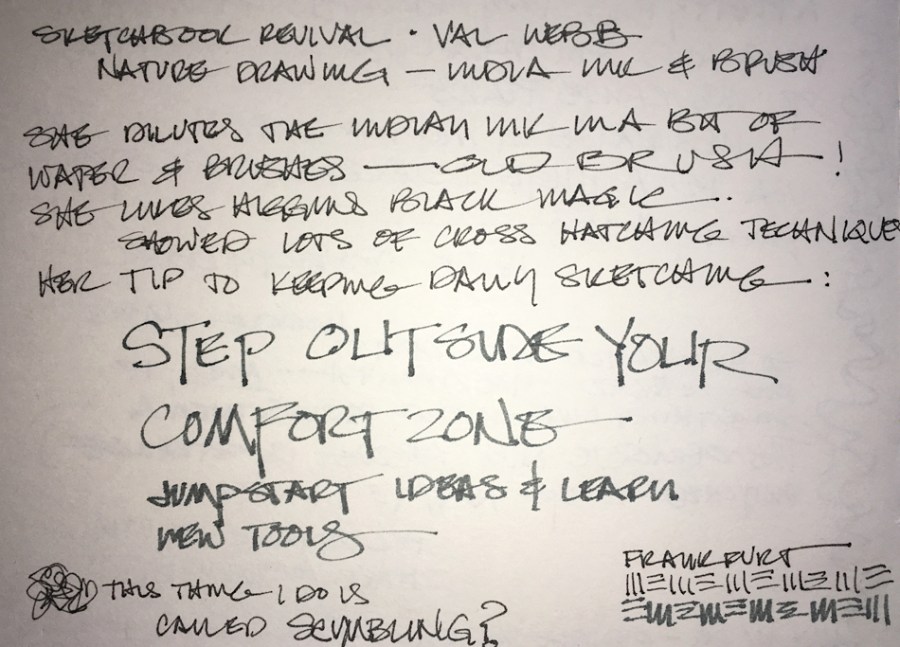 SKETCHBOOK REVIVAL · VAL WEBB
NATURE DRAWING — INDIA INK & BRUSH
SHE DILUTES THE INDIAN INK IN A BIT OF
WATER & BRUSHES — OLD BRUSH!
SHE LIKES HIGGINS BLACK MAGIC..
SHOWED LOTS OF CROSS HATCHING TECHNIQUES
HER TIP TO KEEPING DAILY SKETCHING:
STEP OUTSIDE YOUR
COMFORT ZONE
JUMPSTART IDEAS & LEARN
NEW TOOLS
THIS THING I DO IS
CALLED SCUMBLING?
FRANKFURT